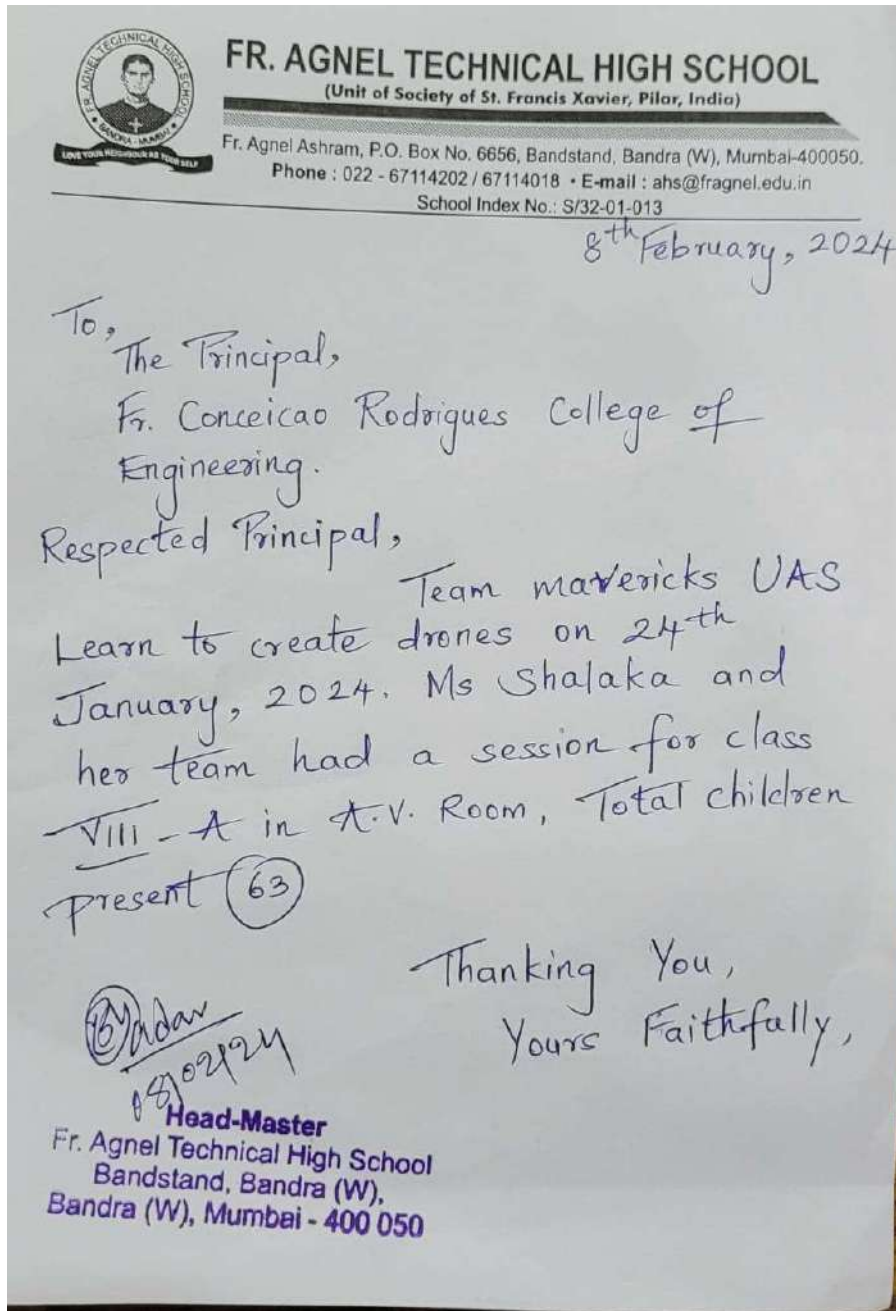 FR. AGNEL TECHNICAL HIGH SCHOOL
BANDRA - MUMBAI
LOVE YOUR NEIGHBOUR AS YOUR SELF
FR. AGNEL TECHNICAL HIGH SCHOOL
(Unit of Society of St. Francis Xavier, Pilar, India)
Fr. Agnel Ashram, P.O. Box No. 6656, Bandstand, Bandra (W), Mumbai-400050.
Phone : 022 - 67114202 / 67114018 • E-mail : ahs@fragnel.edu.in
School Index No.: S/32-01-013
8th February, 2024
To,
The Principal,
Fr. Conceicao Rodrigues College of
Engineering.
Respected Principal,
Team mavericks UAS
Learn to create drones on 24th
January, 2024. Ms Shalaka and
her team had a session for class
VIII - A in A.V. Room, Total children
present 63
Thanking You,
Yours Faithfully,
Yadav
08/02/24
Head-Master
Fr. Agnel Technical High School
Bandstand, Bandra (W),
Bandra (W), Mumbai - 400 050